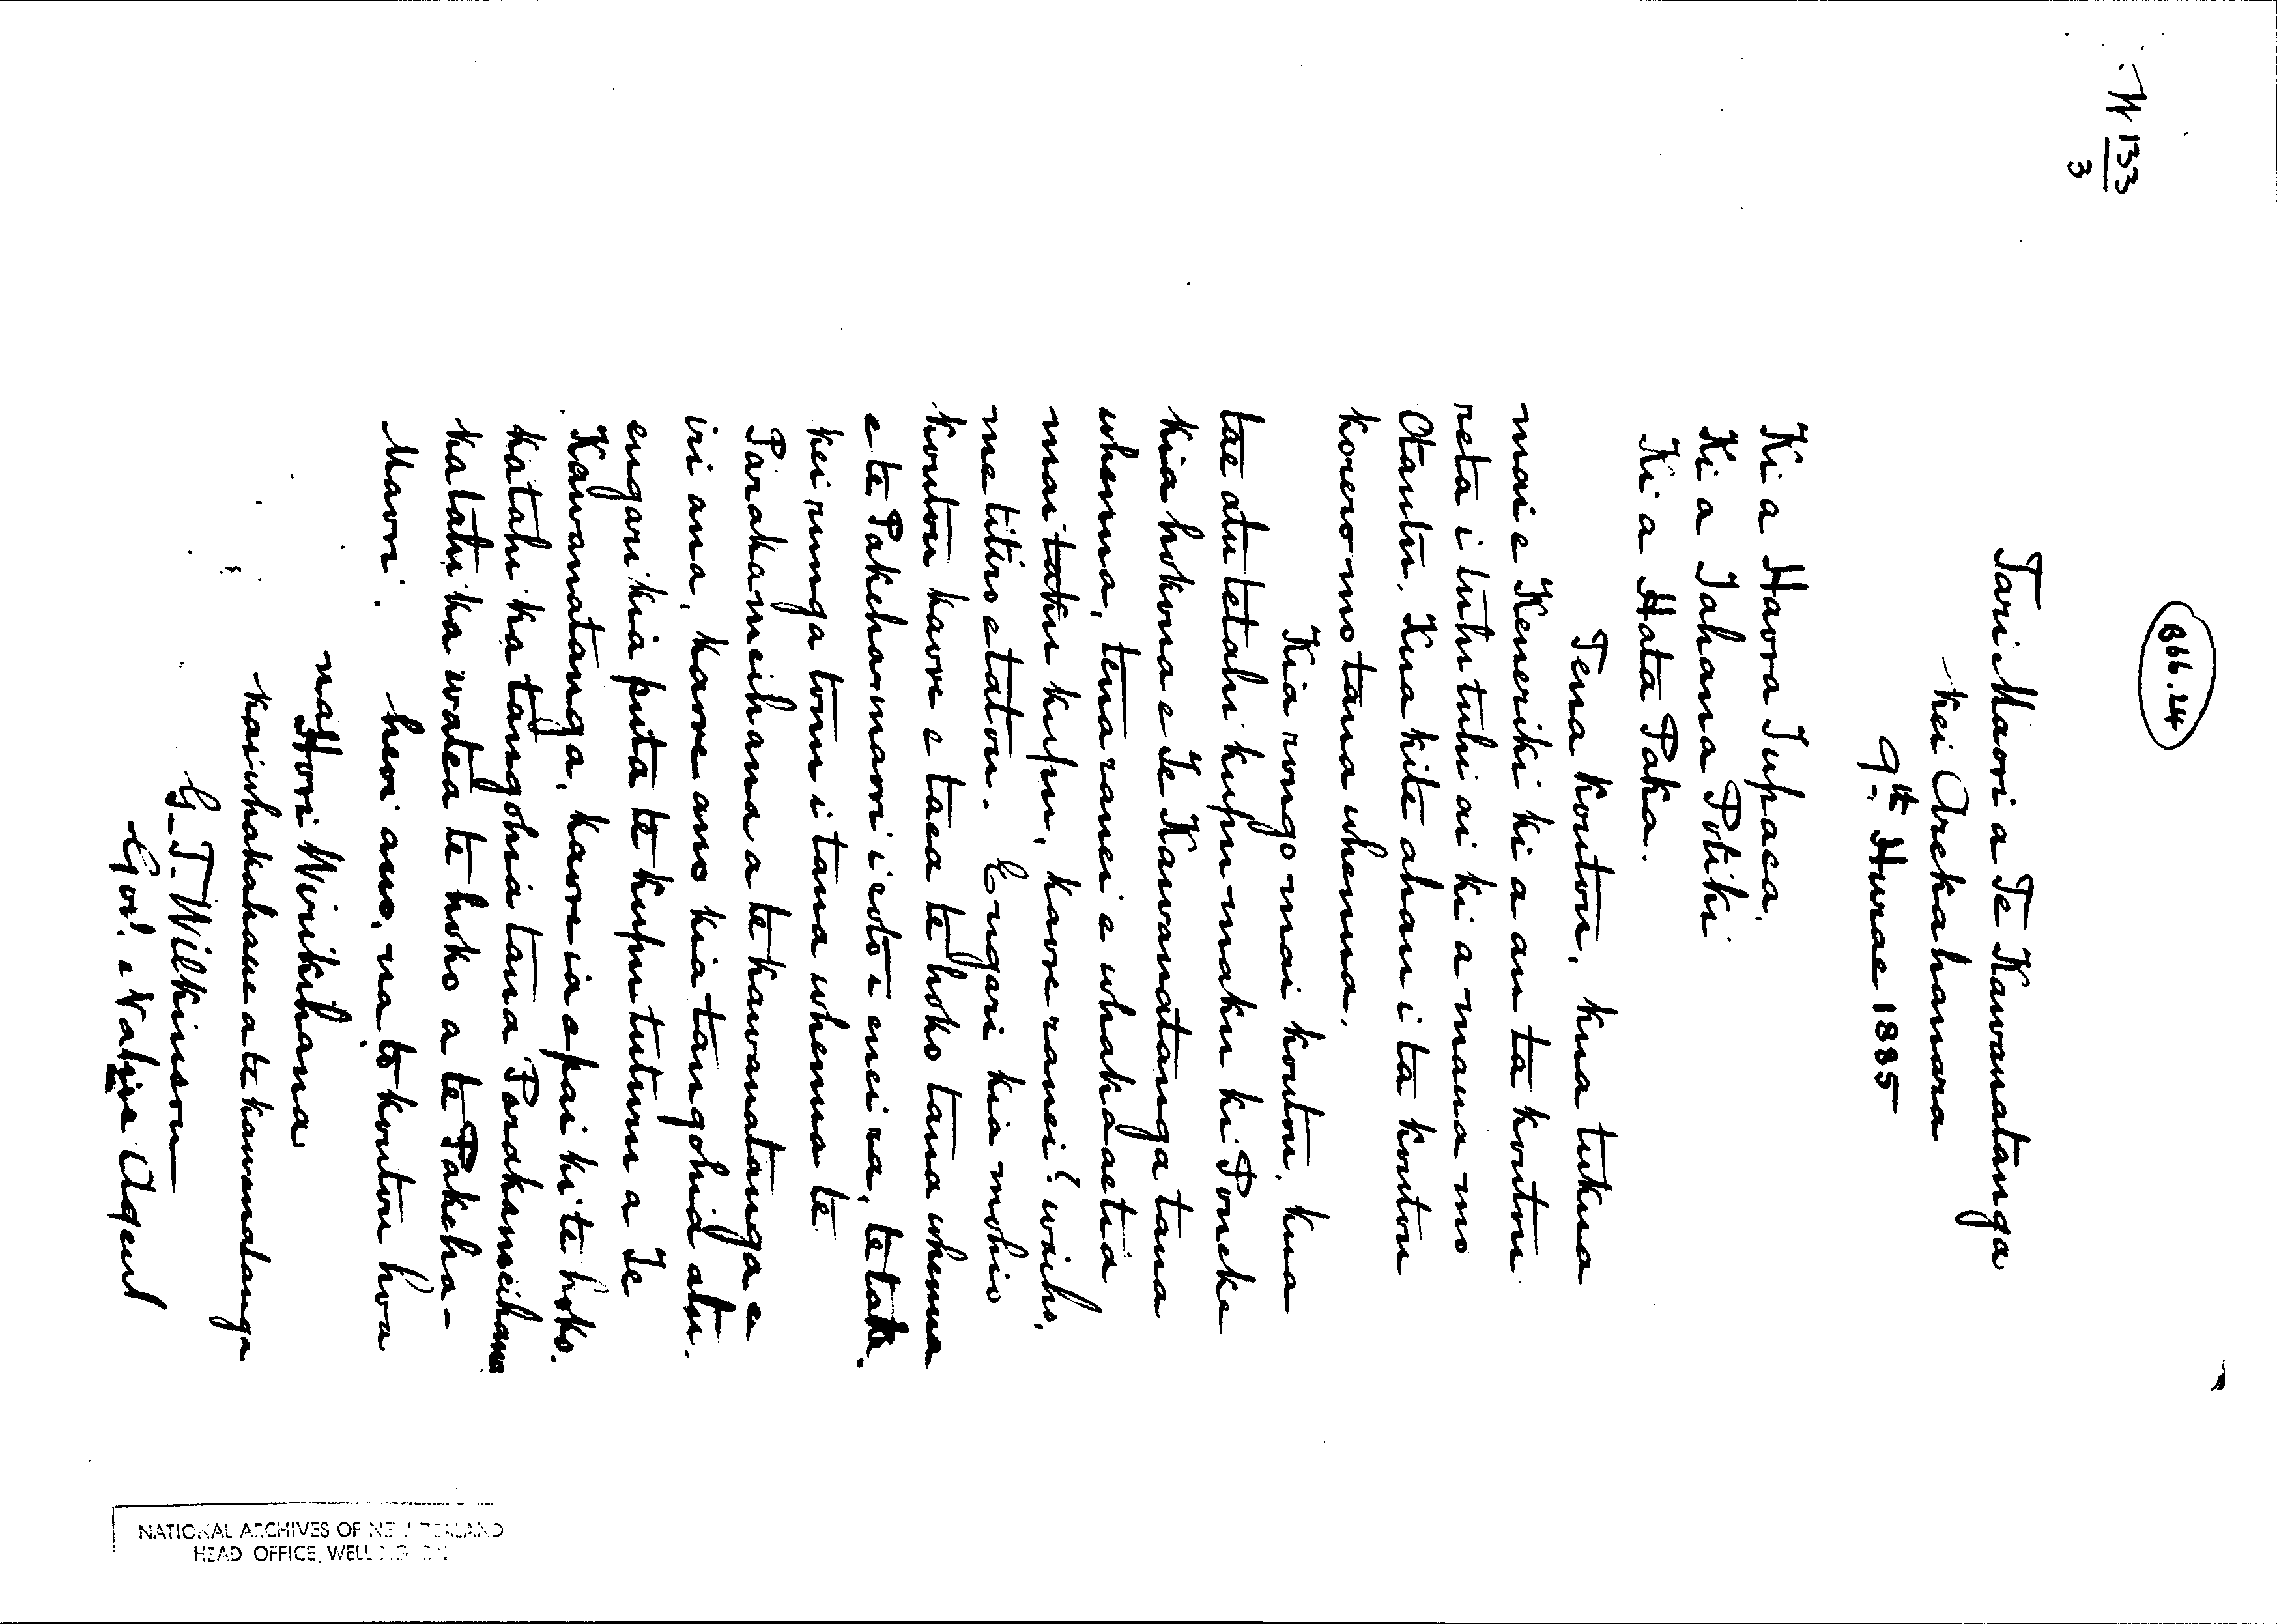 W 133
3
B66.24
Tari Maori a Te Kawanatanga
Kei Arekahanara
9th Hurae 1885
Ki a Haora Tupaea.
Ki a Tahana Potiki
Ki a Hata Paka.
Tena koutou, kua tukua
mai e Keneriki ki a au ta koutou
reta i tuhituhi ai ki a mana mo
Otautu. Kua kite ahau i ta koutou
korero mo taua whenua.
Kia rongo mai koutou, kua
tae atu tetahi kupu maku ki Poneke
kia hokona e Te Kawanatanga taua
whenua, tena ranei e whakaaetia
mai taku kupu, kaore ranei? waiho,
me titiro e tatou. Engari kia mohio
koutou kaore e taea te hoko taua whenua
e te Pakeha maori i roto i enei ra, te take.
kei runga tonu i taua whenua te
Parakameihana a te kawanatanga e
iri ana, kaore ano kia tangohia atu.
engari kia puta te kupu tuturu a Te
Kawanatanga, kaore ia e pai ki te hoko.
katahi ka tangohia taua Parakameihana
katahi ka watea te hoko a te Pakeha-
Maori. heoi ano, na to koutou hoa
na Hori Wirikihana
kaiwhakahaere a te kawanatanga
G. T. Wilkinson
Govt. Native Agent
NATIONAL ARCHIVES OF NEW ZEALAND
HEAD OFFICE, WELLINGTON